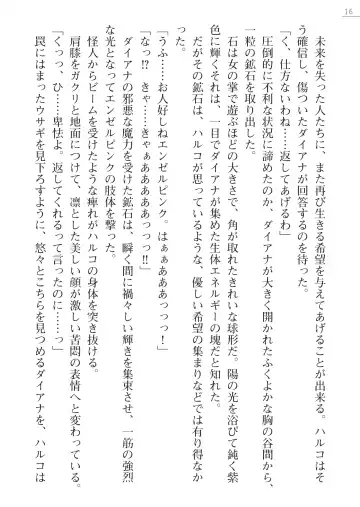 16
未来を失った人たちに、また再び生きる希望を与えてあげることが出来る。ハルコはそ
う確信し、傷ついたダイアナが回答するのを待った。
「く、仕方ないわね……返してあげるわ」
圧倒的に不利な状況に諦めたのか、ダイアナが大きく開かれたふくよかな胸の谷間から、
一粒の鉱石を取り出した。
石は女の掌で遊ぶほどの大きさで、角が取れたきれいな球形だ。陽の光を浴びて鈍く紫
色に輝くそれは、一日でダイアナが集めた生体エネルギーの塊だと知れた。
だがその鉱石は、ハルコが思っているような、優しい希望の集まりなどでは有り得なか
った。
「うふ……お人好しねエンゼルピンク。はぁぁぁっ！」
「なっ!? きゃ……きゃぁああああっっ!!」
ダイアナの邪悪な魔力を受けた鉱石は、瞬く間に禍々しい輝きを集束させ、一筋の強烈
な光となってエンゼルピンクの肢体を撃った。
怪人からビームを受けたような痺れがハルコの身体を突き抜ける。
肩膝をガクリと地面につけて、凛とした美しい顔が激しい苦悶の表情へと変わった。
「くっっ、ひ、卑怯よ。返してくれるって言ったのに……っ」
罠にはまったウサギを見下ろすように、悠々とこちらを見つめるダイアナを、ハルコは